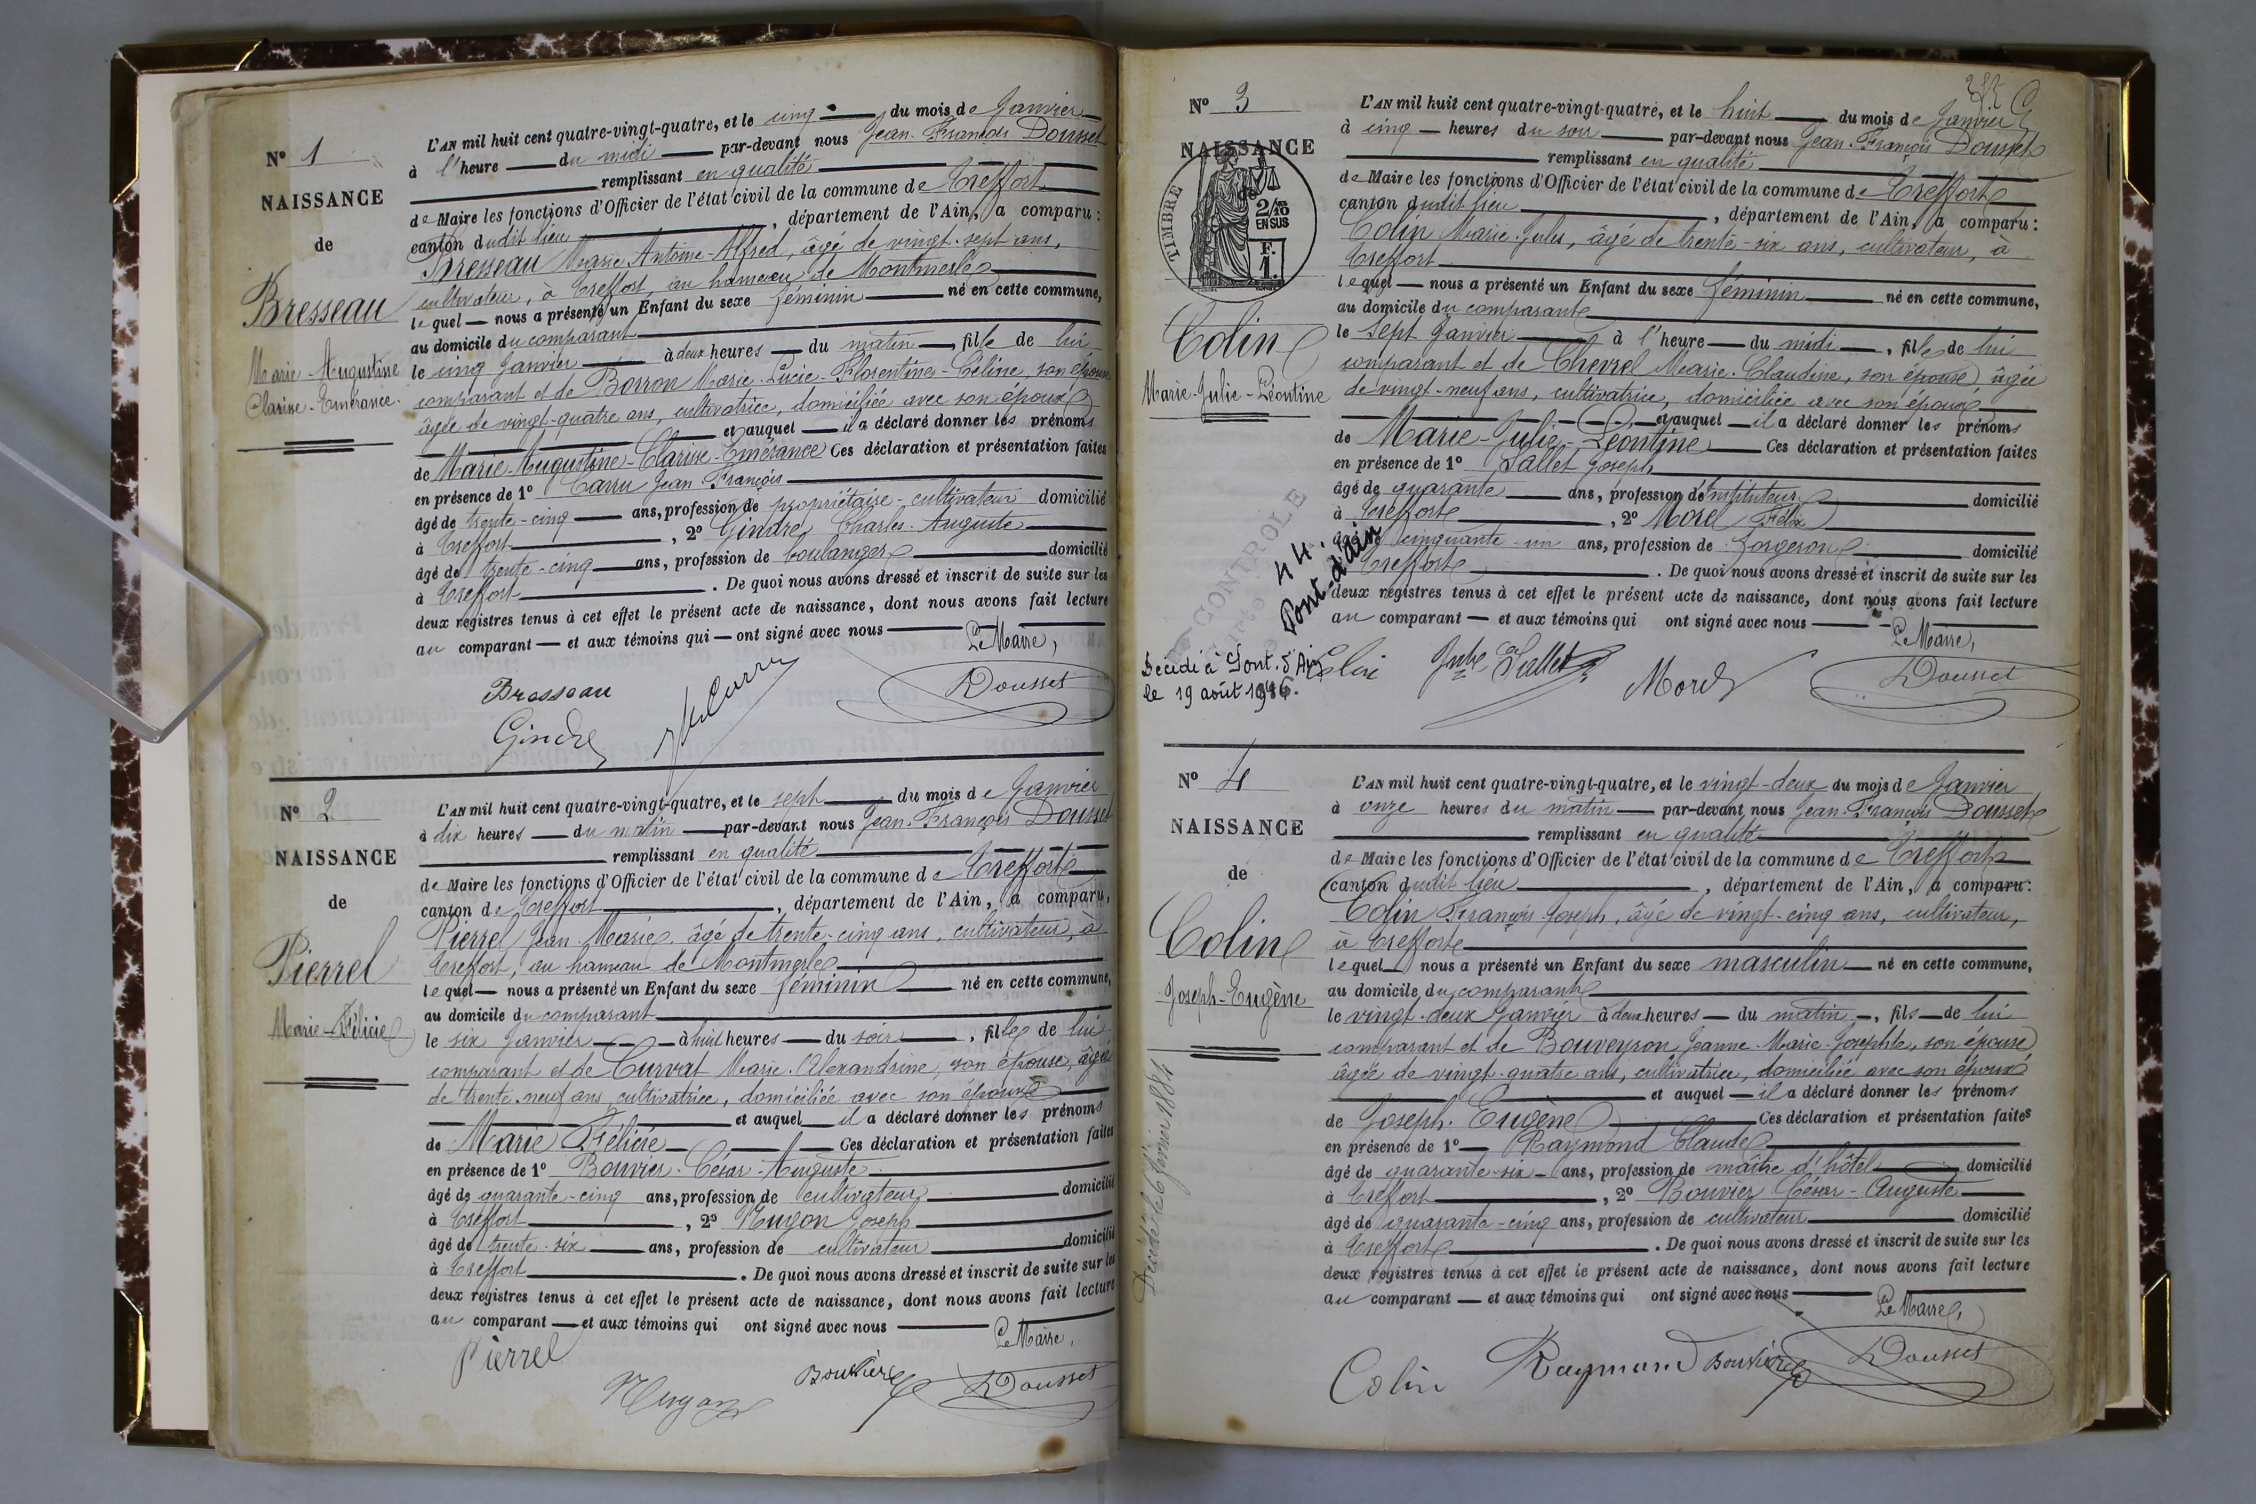 Nº 1
NAISSANCE
de
Bresseau
Marie-Augustine
Clarisse-Emérance.
L'AN mil huit cent quatre-vingt-quatre, et le cinq du mois de Janvier
à l'heure du midi par-devant nous Jean-François Dousset
remplissant en qualité
de Maire les fonctions d'Officier de l'état civil de la commune de Treffort
canton dudit lieu, département de l'Ain, a comparu:
Bresseau Marie Antoine-Alfred, âgé de vingt-sept ans,
cultivateur, à Treffort, au hameau de Montmerle
lequel nous a présenté un Enfant du sexe féminin né en cette commune,
au domicile du comparant
le cinq Janvier à deux heures du matin, fille de lui
comparant et de Borron Marie-Lucie-Florentine-Céline, son épouse
âgée de vingt-quatre ans, cultivatrice, domiciliée avec son époux
et auquel il a déclaré donner les prénoms
de Marie-Augustine-Clarisse-Emérance Ces déclaration et présentation faites
en présence de 1º Carru Jean-François
âgé de trente-cinq ans, profession de propriétaire-cultivateur domicilié
à Treffort, 2º Gindre Charles-Auguste
âgé de trente-cinq ans, profession de boulanger domicilié
à Treffort. De quoi nous avons dressé et inscrit de suite sur les
deux registres tenus à cet effet le présent acte de naissance, dont nous avons fait lecture
au comparant et aux témoins qui ont signé avec nous
Le Maire,
Bresseau
Dousset
Gindre
Nº 2
NAISSANCE
de
Pierrel
Marie-Félicie
L'AN mil huit cent quatre-vingt-quatre, et le sept du mois de Janvier
à dix heures du matin par-devant nous Jean-François Dousset
remplissant en qualité
de Maire les fonctions d'Officier de l'état civil de la commune de Treffort
canton de Treffort, département de l'Ain, a comparu,
Pierrel Jean-Marie, âgé de trente-cinq ans, cultivateur, à
Treffort, au hameau de Montmerle
lequel nous a présenté un Enfant du sexe féminin né en cette commune,
au domicile du comparant
le six Janvier à huit heures du soir, fille de lui
comparant et de Curvat Marie-Alexandrine, son épouse, âgée
de trente-neuf ans, cultivatrice, domiciliée avec son époux
et auquel il a déclaré donner les prénoms
de Marie Félicie Ces déclaration et présentation faites
en présence de 1º Bouvier-César-Auguste
âgé de quarante-cinq ans, profession de cultivateur domicilié
à Treffort, 2º Nugon Joseph
âgé de trente-six ans, profession de cultivateur domicilié
à Treffort. De quoi nous avons dressé et inscrit de suite sur les
deux registres tenus à cet effet le présent acte de naissance, dont nous avons fait lecture
au comparant et aux témoins qui ont signé avec nous
Le Maire,
Pierrel
Nugon
Bouvier
Dousset
Nº 3
NAISSANCE
TIMBRE
2/10
EN SUS
F.
1.
Colin
Marie-Julie-Léontine
CONTROLE
44.
Pont-d'ain
Décédé à Pont-d'Ain
le 19 août 1946.
L'AN mil huit cent quatre-vingt-quatre, et le huit du mois de Janvier
à cinq heures du soir par-devant nous Jean-François Dousset
remplissant en qualité
de Maire les fonctions d'Officier de l'état civil de la commune de Treffort
canton dudit lieu, département de l'Ain, a comparu:
Colin Marie-Jules, âgé de trente-six ans, cultivateur, à
Treffort
lequel nous a présenté un Enfant du sexe féminin né en cette commune,
au domicile du comparant
le sept Janvier à l'heure du midi, fille de lui
comparant et de Chevrel Marie-Claudine, son épouse, âgée
de vingt-neuf ans, cultivatrice, domiciliée avec son époux
et auquel il a déclaré donner les prénoms
de Marie-Julie-Léontine Ces déclaration et présentation faites
en présence de 1º Sallet Joseph
âgé de quarante ans, profession d'instituteur domicilié
à Treffort, 2º Morel Félix
âgé de cinquante-un ans, profession de forgeron domicilié
Treffort. De quoi nous avons dressé et inscrit de suite sur les
deux registres tenus à cet effet le présent acte de naissance, dont nous avons fait lecture
au comparant et aux témoins qui ont signé avec nous
Le Maire,
Colin
Sallet
Morel
Dousset
Nº 4
NAISSANCE
de
Colin
Joseph-Eugène
Décédé le 26 février 1884
L'AN mil huit cent quatre-vingt-quatre, et le vingt-deux du mois de Janvier
à onze heures du matin par-devant nous Jean-François Dousset
remplissant en qualité
de Maire les fonctions d'Officier de l'état civil de la commune de Treffort
canton dudit lieu, département de l'Ain, a comparu:
Colin François-Joseph, âgé de vingt-cinq ans, cultivateur,
à Treffort
lequel nous a présenté un Enfant du sexe masculin né en cette commune,
au domicile du comparant
le vingt-deux Janvier à deux heures du matin, fils de lui
comparant et de Bouveyron Jeanne-Marie-Josephte, son épouse
âgée de vingt-quatre ans, cultivatrice, domiciliée avec son époux
et auquel il a déclaré donner les prénoms
de Joseph-Eugène Ces déclaration et présentation faites
en présence de 1º Raymond Claude
âgé de quarante-six ans, profession de maître d'hôtel domicilié
à Treffort, 2º Bouvier César-Auguste
âgé de quarante-cinq ans, profession de cultivateur domicilié
à Treffort. De quoi nous avons dressé et inscrit de suite sur les
deux registres tenus à cet effet le présent acte de naissance, dont nous avons fait lecture
au comparant et aux témoins qui ont signé avec nous
Le Maire,
Colin
Raymond
Bouvier
Dousset